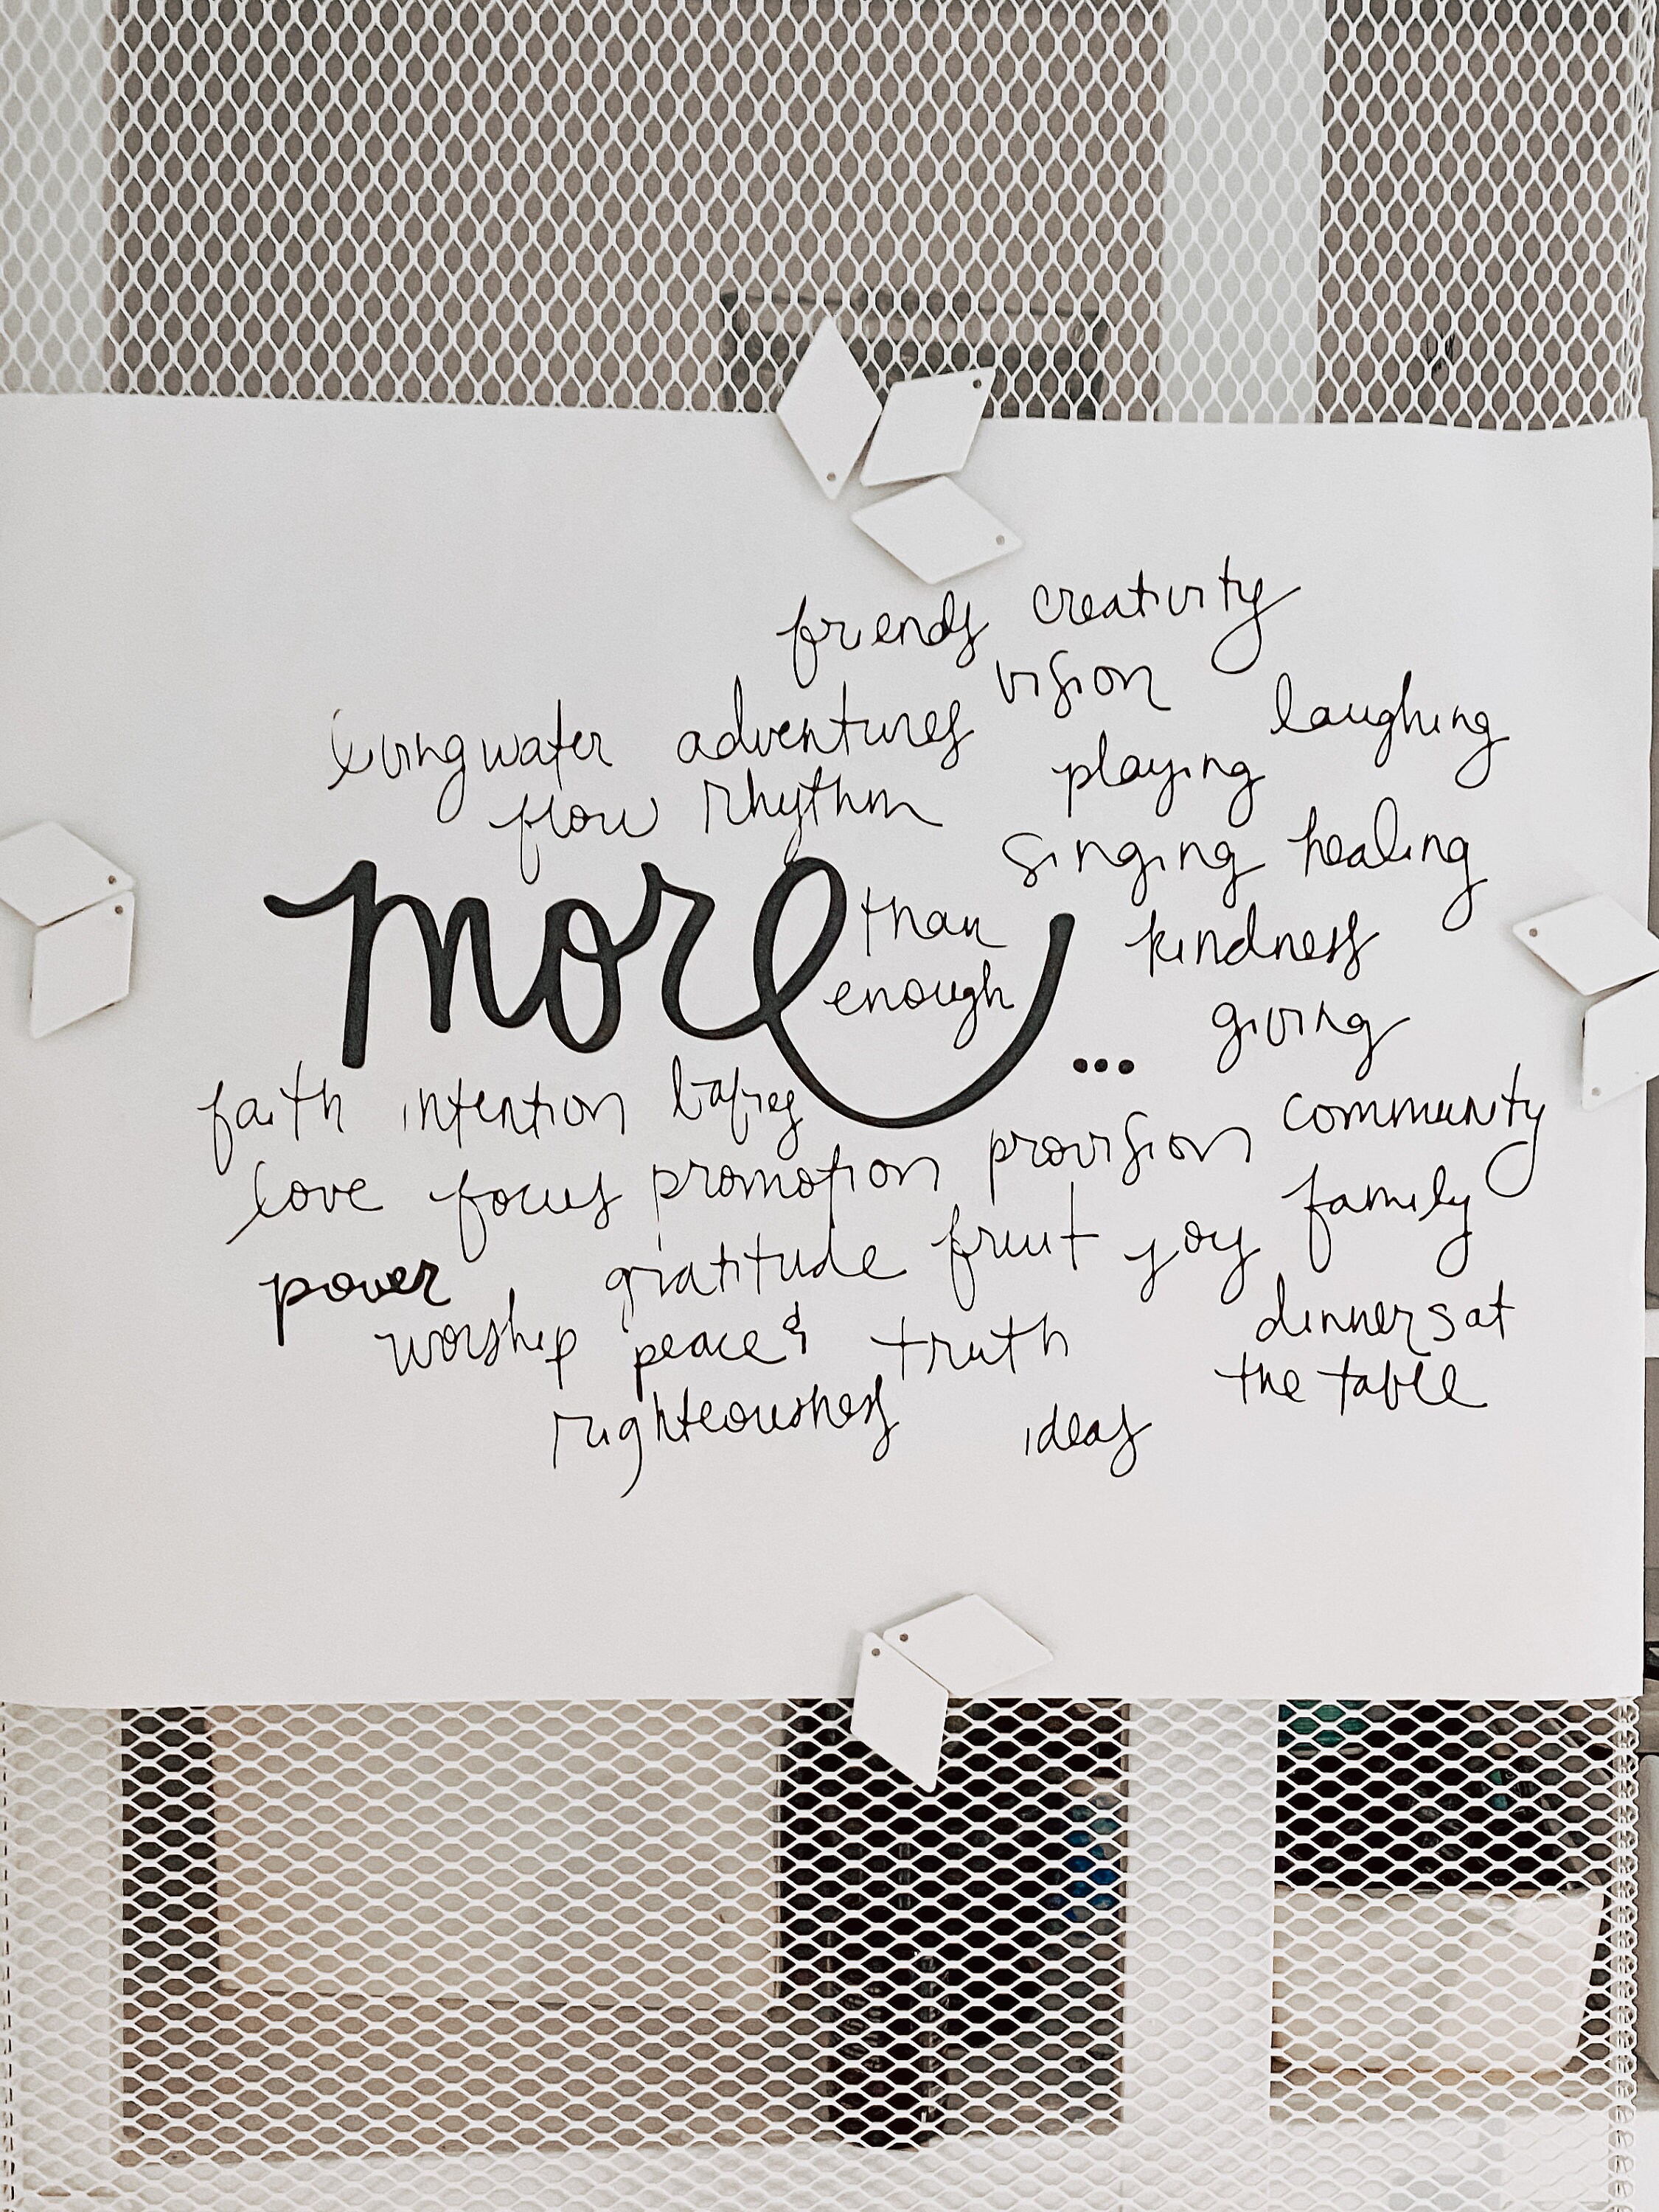 friends creativity
vision
living water adventures laughing
playing
flow rhythm
singing healing
more than
enough ...
kindness
giving
faith intention babies
provision community
love focus promotion
family
gratitude fruit joy
power
dinners at
worship peace & truth
the table
righteousness
ideas